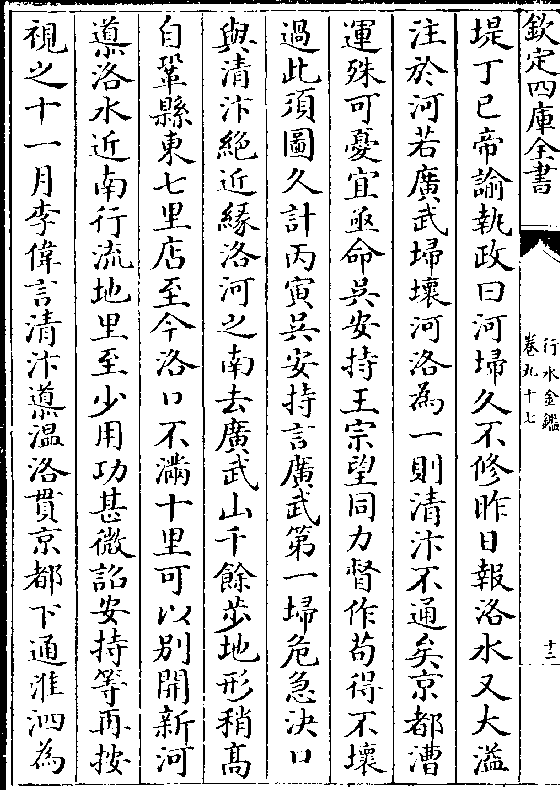 欽定四庫全書
行水金鑑
卷九十七
十三
堤丁巳帝諭執政曰河埽久不修昨日報洛水又大溢
注於河若廣武埽壞河洛為一則清汴不通矣京都漕
運殊可憂宜亟命吳安持王宗望同力督作苟得不壞
過此須圖久計丙寅吳安持言廣武第一埽危急決口
與清汴絶近緣洛河之南去廣武山千餘步地形稍髙
自鞏縣東七里店至今洛口不滿十里可以別開新河
導洛水近南行流地里至少用功甚微詔安持等再按
視之十一月李偉言清汴導溫洛貫京都下通淮泗為